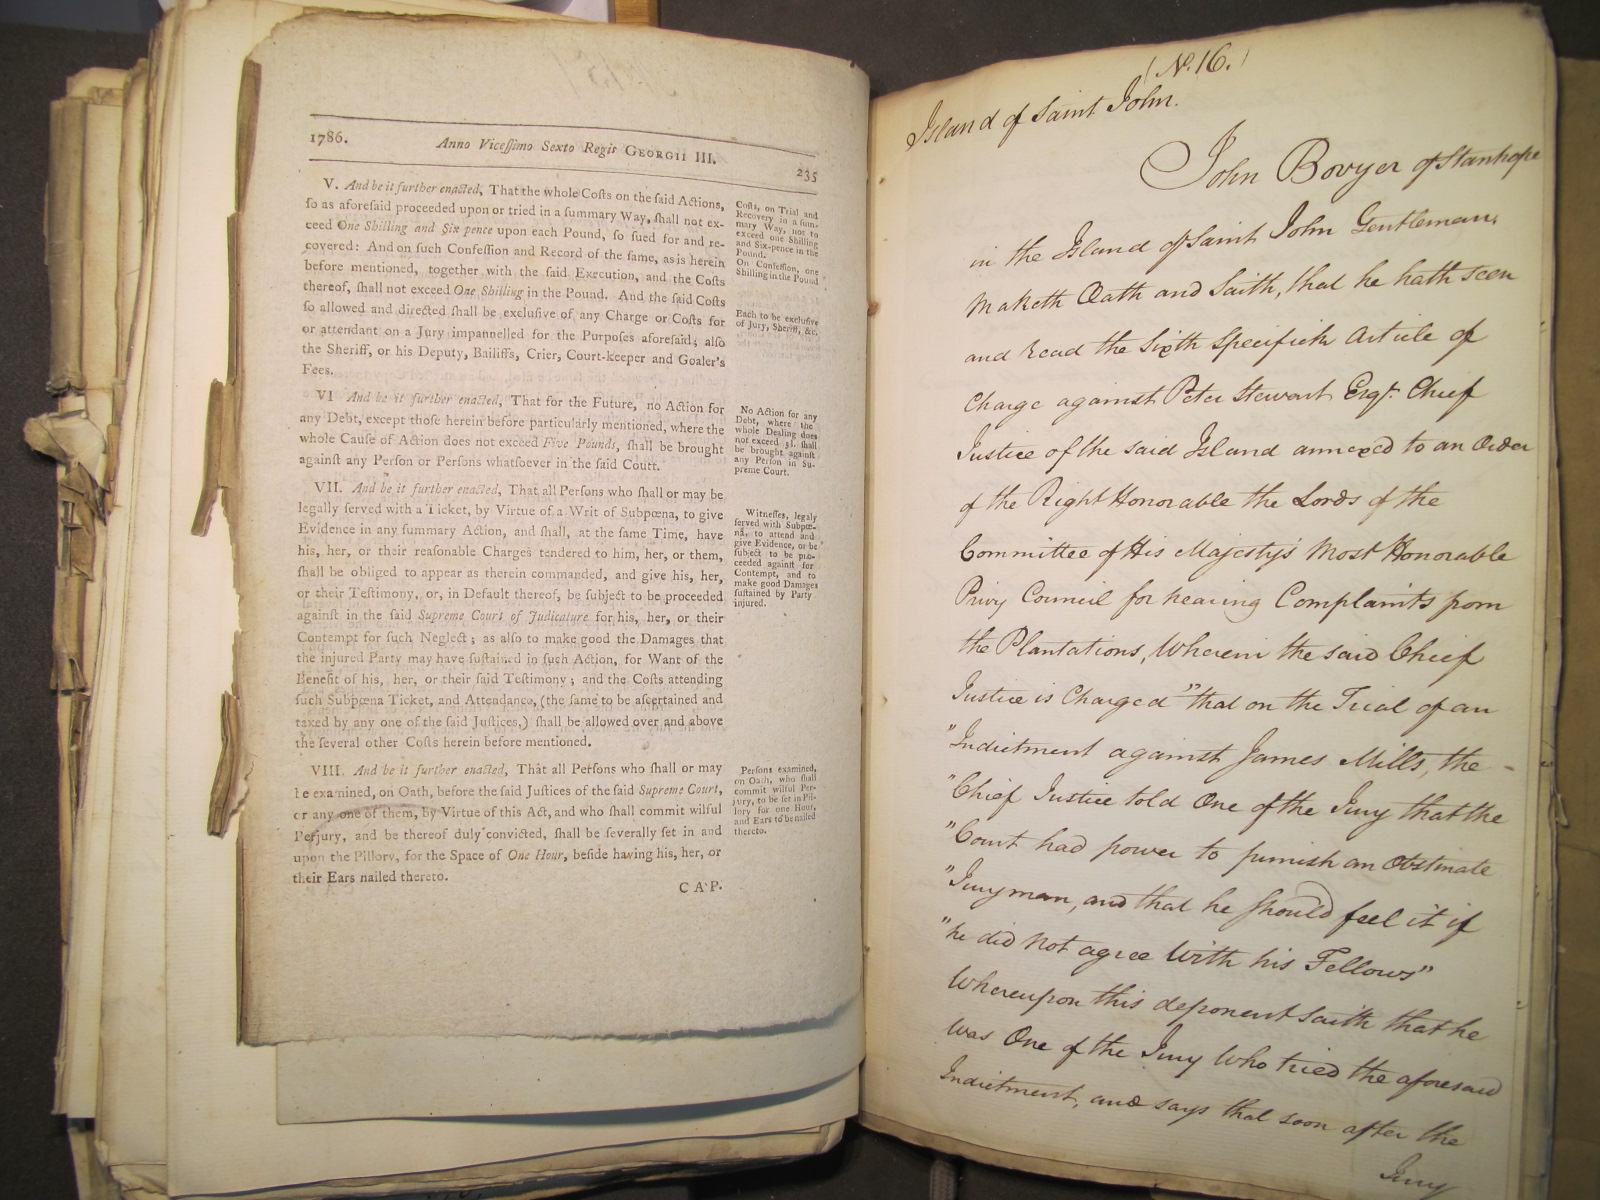 1786.
Anno Vicessimo Sexto Regis GEORGII III.
235
V. And be it further enacted, That the whole Costs on the said Actions,
so as aforesaid proceeded upon or tried in a summary Way, shall not ex-
ceed One Shilling and Six pence upon each Pound, so sued for and re-
covered: And on such Confession and Record of the same, as is herein
before mentioned, together with the said Execution, and the Costs
thereof, shall not exceed One Shilling in the Pound. And the said Costs
so allowed and directed shall be exclusive of any Charge or Costs for
or attendant on a Jury impannelled for the Purposes aforesaid; also
the Sheriff, or his Deputy, Bailiffs, Crier, Court-keeper and Goaler's
Fees.
Costs, on Trial and
Recovery in a sum-
mary Way, not to
exceed one Shilling
and Six-pence in the
Pound.
On Confession, one
Shilling in the Pound
Each to be exclusive
of Jury, Sheriff, &c.
VI And be it further enacted, That for the Future, no Action for
any Debt, except those herein before particularly mentioned, where the
whole Cause of Action does not exceed Five Pounds, shall be brought
against any Person or Persons whatsoever in the said Coutt.
No Action for any
Debt, where the
whole Dealing does
not exceed 5l. shall
be brought against
any Person in Su-
preme Court.
VII. And be it further enacted, That all Persons who shall or may be
legally served with a Ticket, by Virtue of a Writ of Subpœna, to give
Evidence in any summary Action, and shall, at the same Time, have
his, her, or their reasonable Charges tendered to him, her, or them,
shall be obliged to appear as therein commanded, and give his, her,
or their Testimony, or, in Default thereof, be subject to be proceeded
against in the said Supreme Court of Judicature for his, her, or their
Contempt for such Neglect; as also to make good the Damages that
the injured Party may have sustained in such Action, for Want of the
Benefit of his, her, or their said Testimony; and the Costs attending
such Subpœna Ticket, and Attendance, (the same to be ascertained and
taxed by any one of the said Justices,) shall be allowed over and above
the several other Costs herein before mentioned.
Witnesses, legaly
served with Subpœ-
na, to attend and
give Evidence, or be
subject to be pro-
ceeded against for
Contempt, and to
make good Damages
sustained by Party
injured.
VIII. And be it further enacted, That all Persons who shall or may
be examined, on Oath, before the said Justices of the said Supreme Court,
or any one of them, by Virtue of this Act, and who shall commit wilful
Perjury, and be thereof duly convicted, shall be severally set in and
upon the Pillory, for the Space of One Hour, beside having his, her, or
their Ears nailed thereto.
Persons examined,
on Oath, who shall
commit wilful Per-
jury, to be set in Pil-
lory for one Hour,
and Ears to be nailed
thereto.
CAP.
(No. 16.)
Island of Saint John.
John Bovyer of Stanhope
in the Island of Saint John Gentleman,
Maketh Oath and Saith, that he hath seen
and read the Sixth Specifick Article of
Charge against Peter Stewart Esqr. Chief
Justice of the said Island annexed to an Order
of the Right Honorable the Lords of the
Committee of His Majesty's Most Honorable
Privy Council for hearing Complaints from
the Plantations, Wherein the said Chief
Justice is Charged "that on the Trial of an
"Indictment against James Mills, the
"Chief Justice told One of the Jury that the
"Court had power to punish an Obstinate
"Juryman, and that he should feel it if
"he did not agree With his Fellows"
Whereupon this deponent Saith that he
was One of the Jury Who tried the aforesaid
Indictment, and says that soon after the
Jury